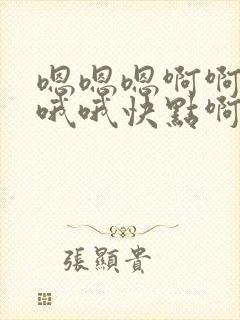 嗯嗯嗯啊啊
哦哦快點啊
張顯貴